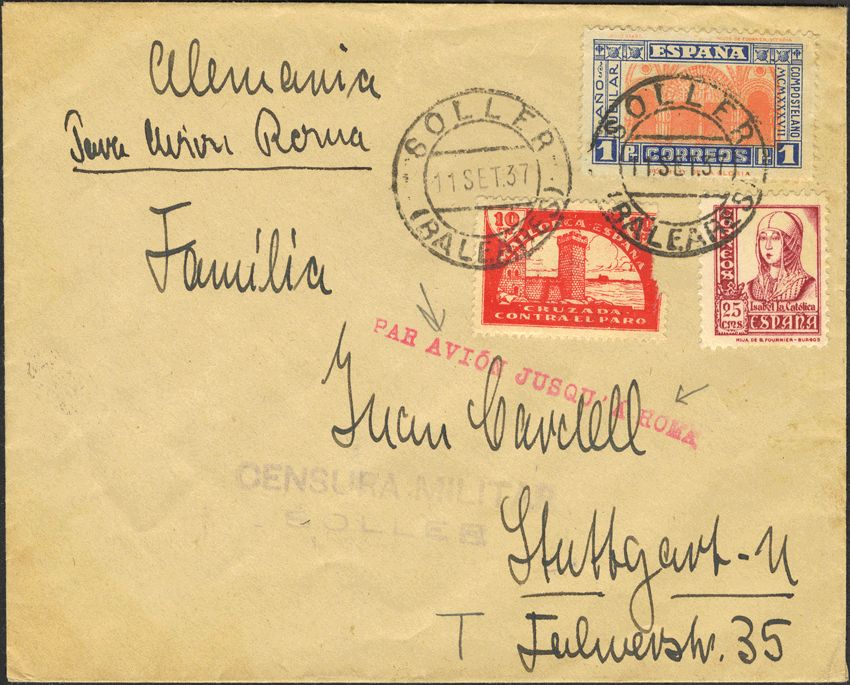 Alemania
Roma
Família
Juan Cardell
Stuttgart-N
35
T
SOLLER
11 SET. 37
(BALEARES)
ESPAÑA
AÑO
COMPOSTELANO
1 P. CORREOS P. 1
SOLLER
11 SET. 37
(BALEARES)
10
MALLORCA-ESPAÑA
CRUZADA
CONTRA EL PARO
CORREOS
25
CTMS
Isabel la Católica
ESPAÑA
HIJA DE B. FOURNIER-BURGOS
PAR AVIÓN JUSQU'A ROMA
CENSURA MILITAR
SOLLER